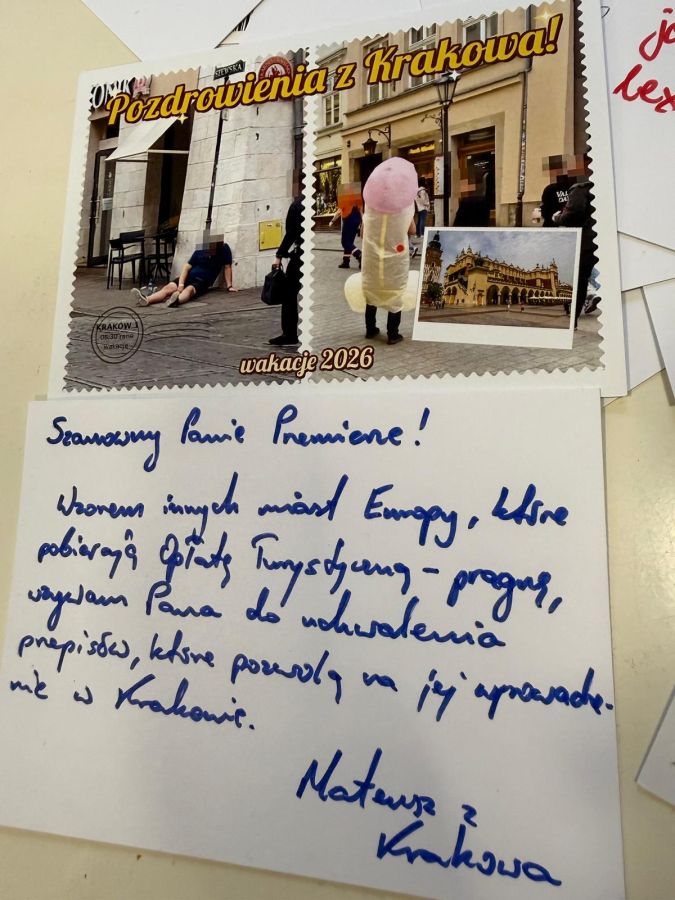 Pozdrowienia z Krakowa!
KRAKÓW 1
06:30 rano
wakacje
wakacje 2026
Szanowny Panie Premierze!
Wzorem innych miast Europy, które
pobierają Opłatę Turystyczną – pragnę,
wzywam Pana do uchwalenia
przepisów, które pozwolą na jej wprowadze-
nie w Krakowie.
Mateusz z
Krakowa